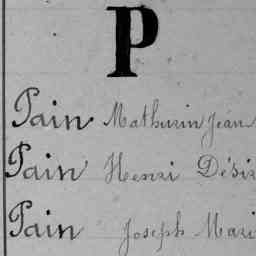 P
Pain Mathurin Jean
Pain Henri Dési
Pain Joseph Mari